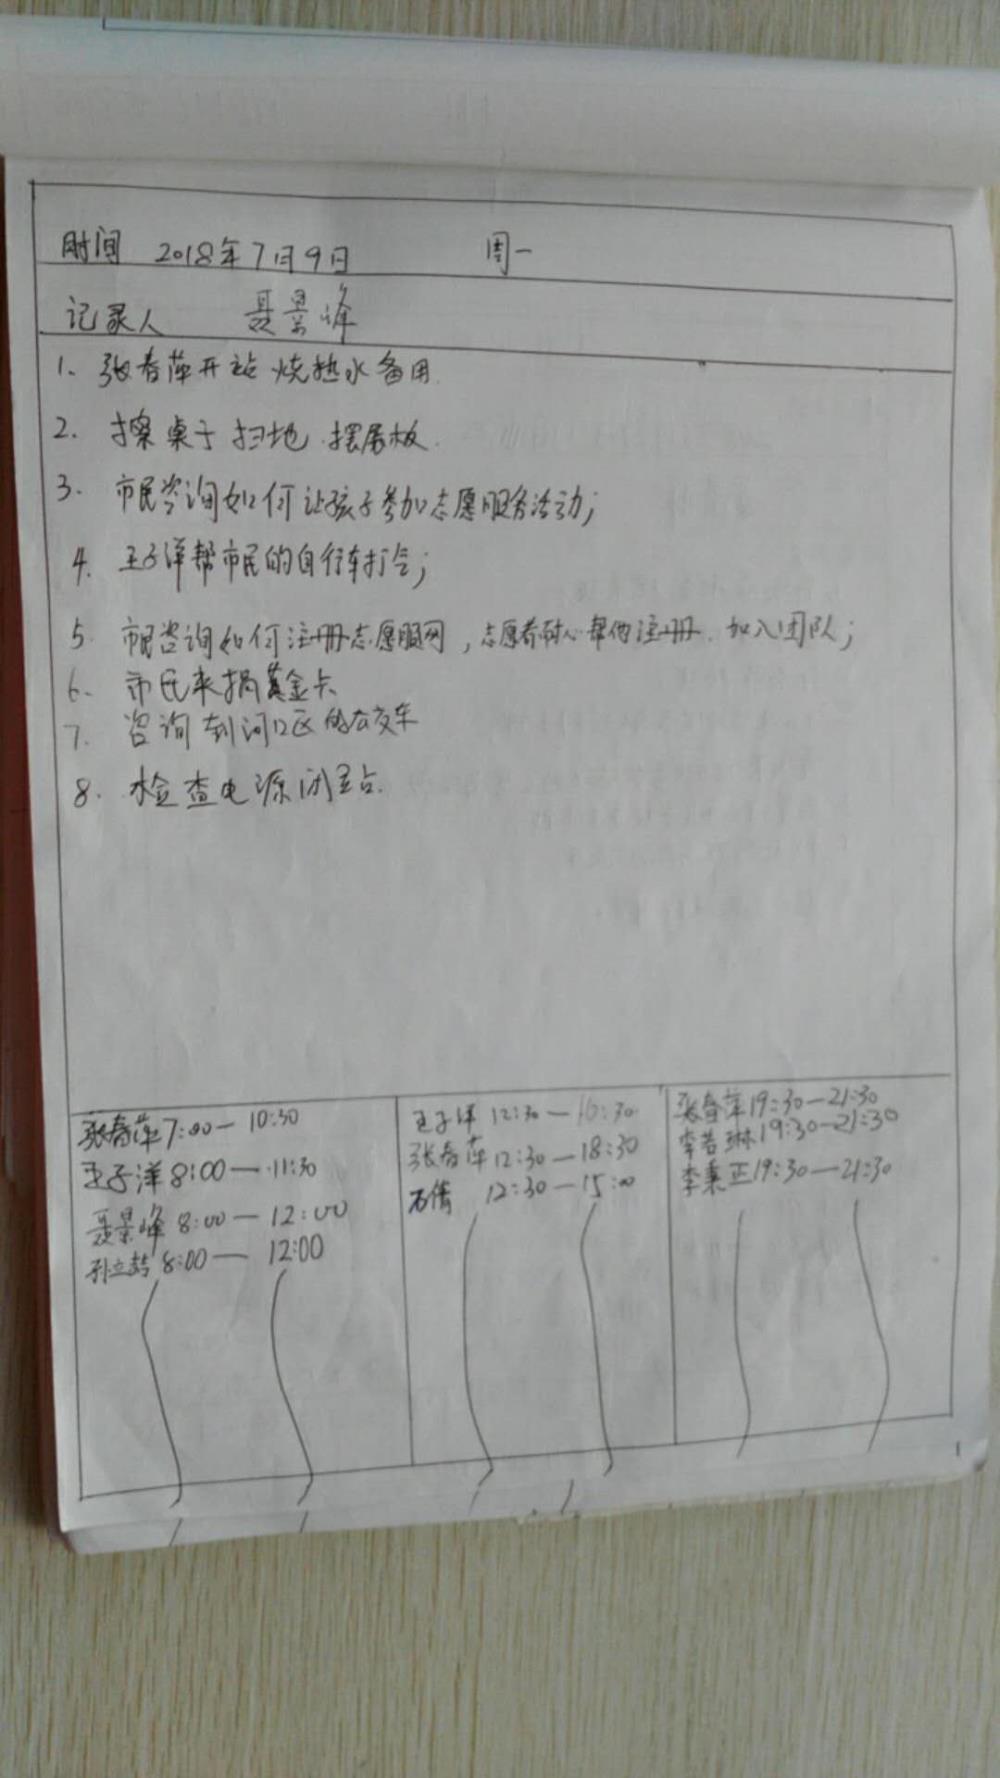 时间 2018年7月9日 周一
记录人 聂景峰
1、张春萍开站 烧热水备用.
2. 擦桌子 扫地 摆展板.
3. 市民咨询如何让孩子参加志愿服务活动;
4. 王子洋帮市民的自行车打气;
5. 市民咨询如何注册志愿服网,志愿者耐心帮他注册.加入团队;
6、市民来捐黄金卡
7. 咨询到河口区的公交车
8. 检查电源闭站.
张春萍7:00—10:30
王子洋8:00—11:30
聂景峰 8:00—12:00
孙立喆8:00—12:00
王子洋 12:30—16:30
张春萍12:30—18:30
石倩 12:30—15:00
张春萍19:30—21:30
李若琳19:30—21:30
李秉正19:30—21:30